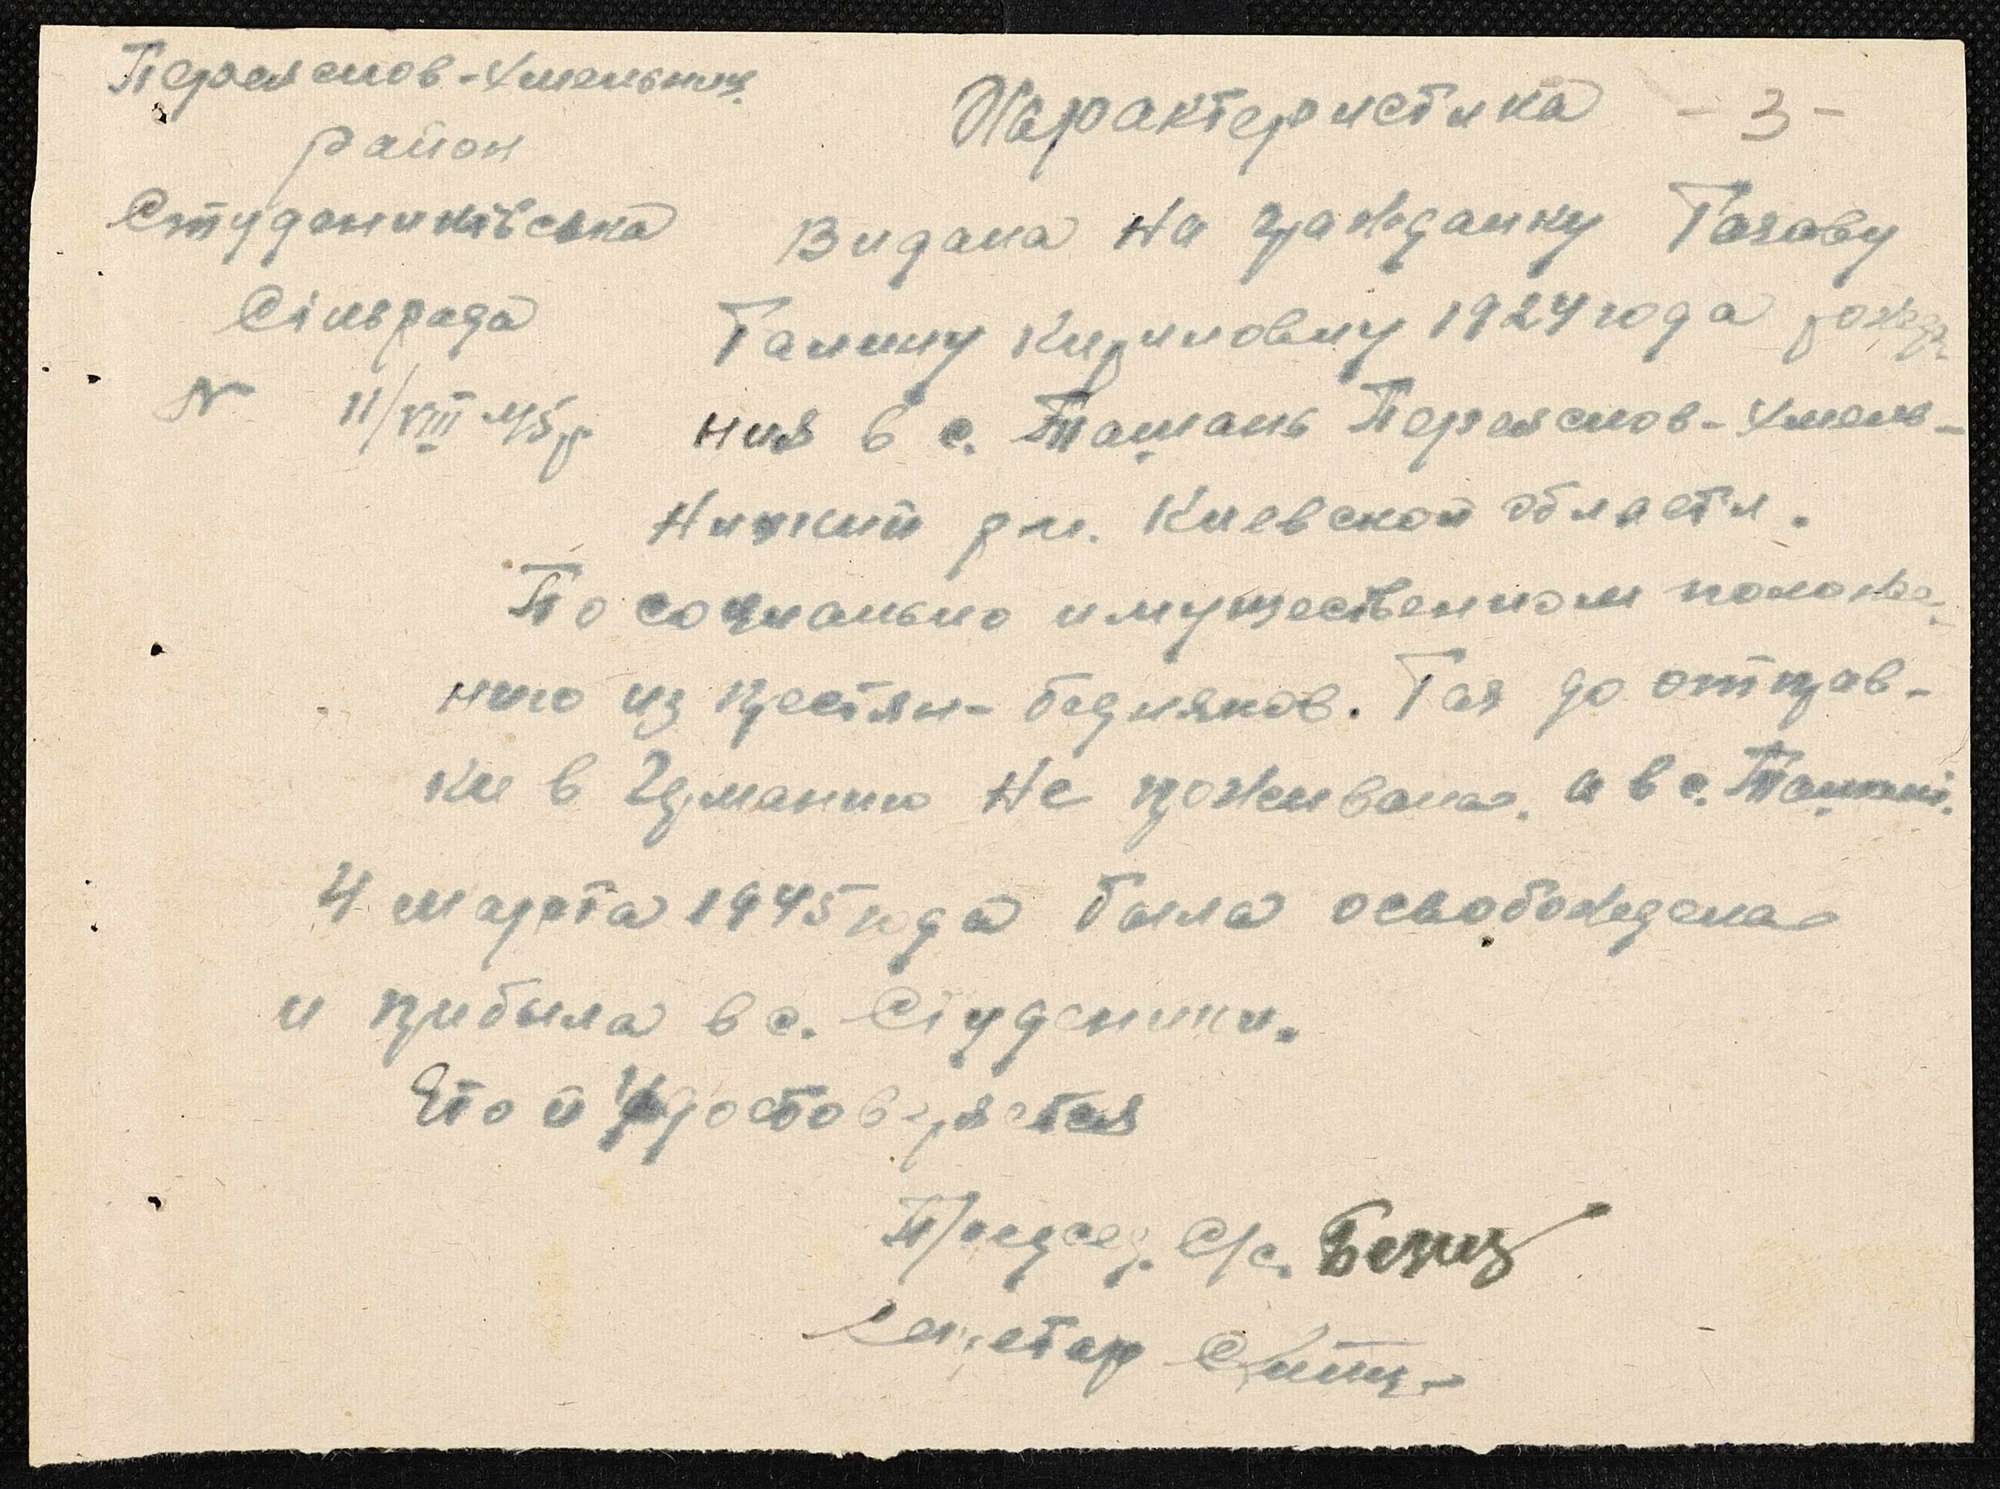 Переяслов-Хмельниц.
район
Студениківська
Сільрада
N 11/VIII 45 р
Характеристика - 3 -
Видана на гражданку Гаяову
Галину Кириловну 1924 года рожде
ния в с. Ташань Переяслов-Хмель-
ницкий р-н. Киевской области.
По социально имущественном положе-
нию из крестян-бедняков. Гая до отправ-
ки в Германию не проживала. а в с. Ташані.
4 марта 1945 года была освобождена
и прибыла в с. Студеники.
Ето й удостоверяется
Председ. С/с.
Секретар